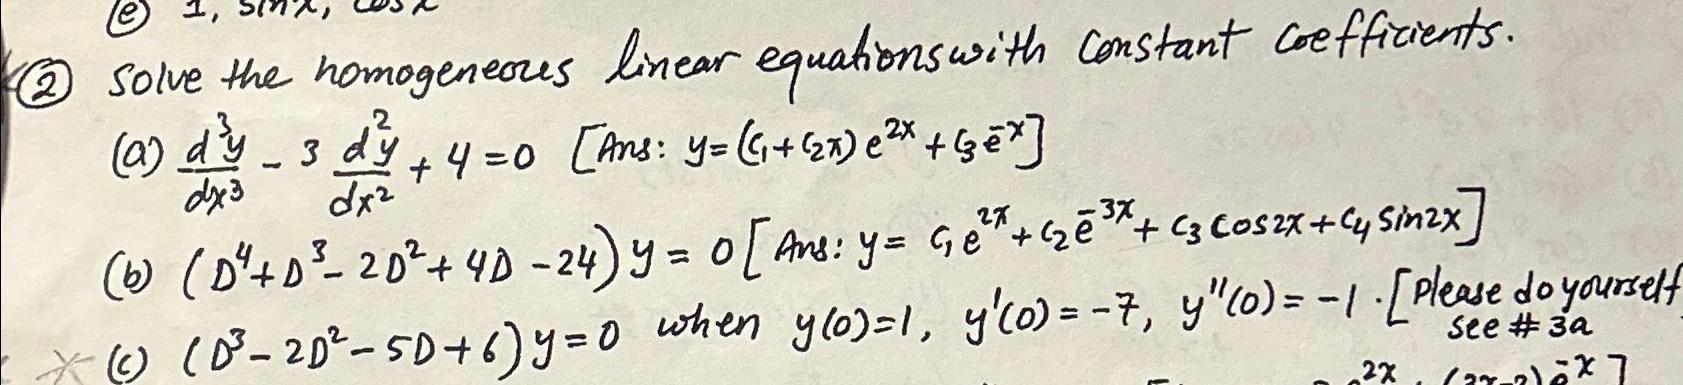 (e) 1, sinx, cosx
(2) Solve the homogeneous linear equations with constant coefficients.
(a) d³y/dx³ - 3 d²y/dx² + 4 = 0 [Ans: y = (c₁ + c₂x) e^{2x} + c₃e^{-x}]
(b) (D⁴ + D³ - 2D² + 4D - 24) y = 0 [Ans: y = c₁e^{2x} + c₂e^{-3x} + c₃ cos2x + c₄ sin2x]
(c) (D³ - 2D² - 5D + 6) y = 0 when y(0)=1, y'(0) = -7, y''(0) = -1. [Please do yourself
see # 3a